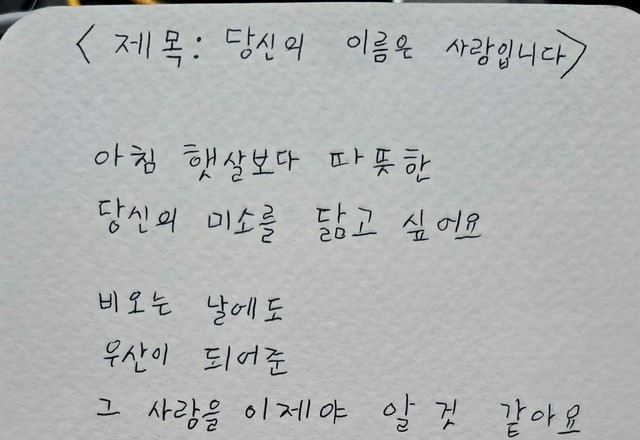 <제목: 당신의 이름은 사랑입니다>
아침 햇살보다 따뜻한
당신의 미소를 닮고 싶어요
비오는 날에도
우산이 되어준
그 사랑을 이제야 알 것 같아요